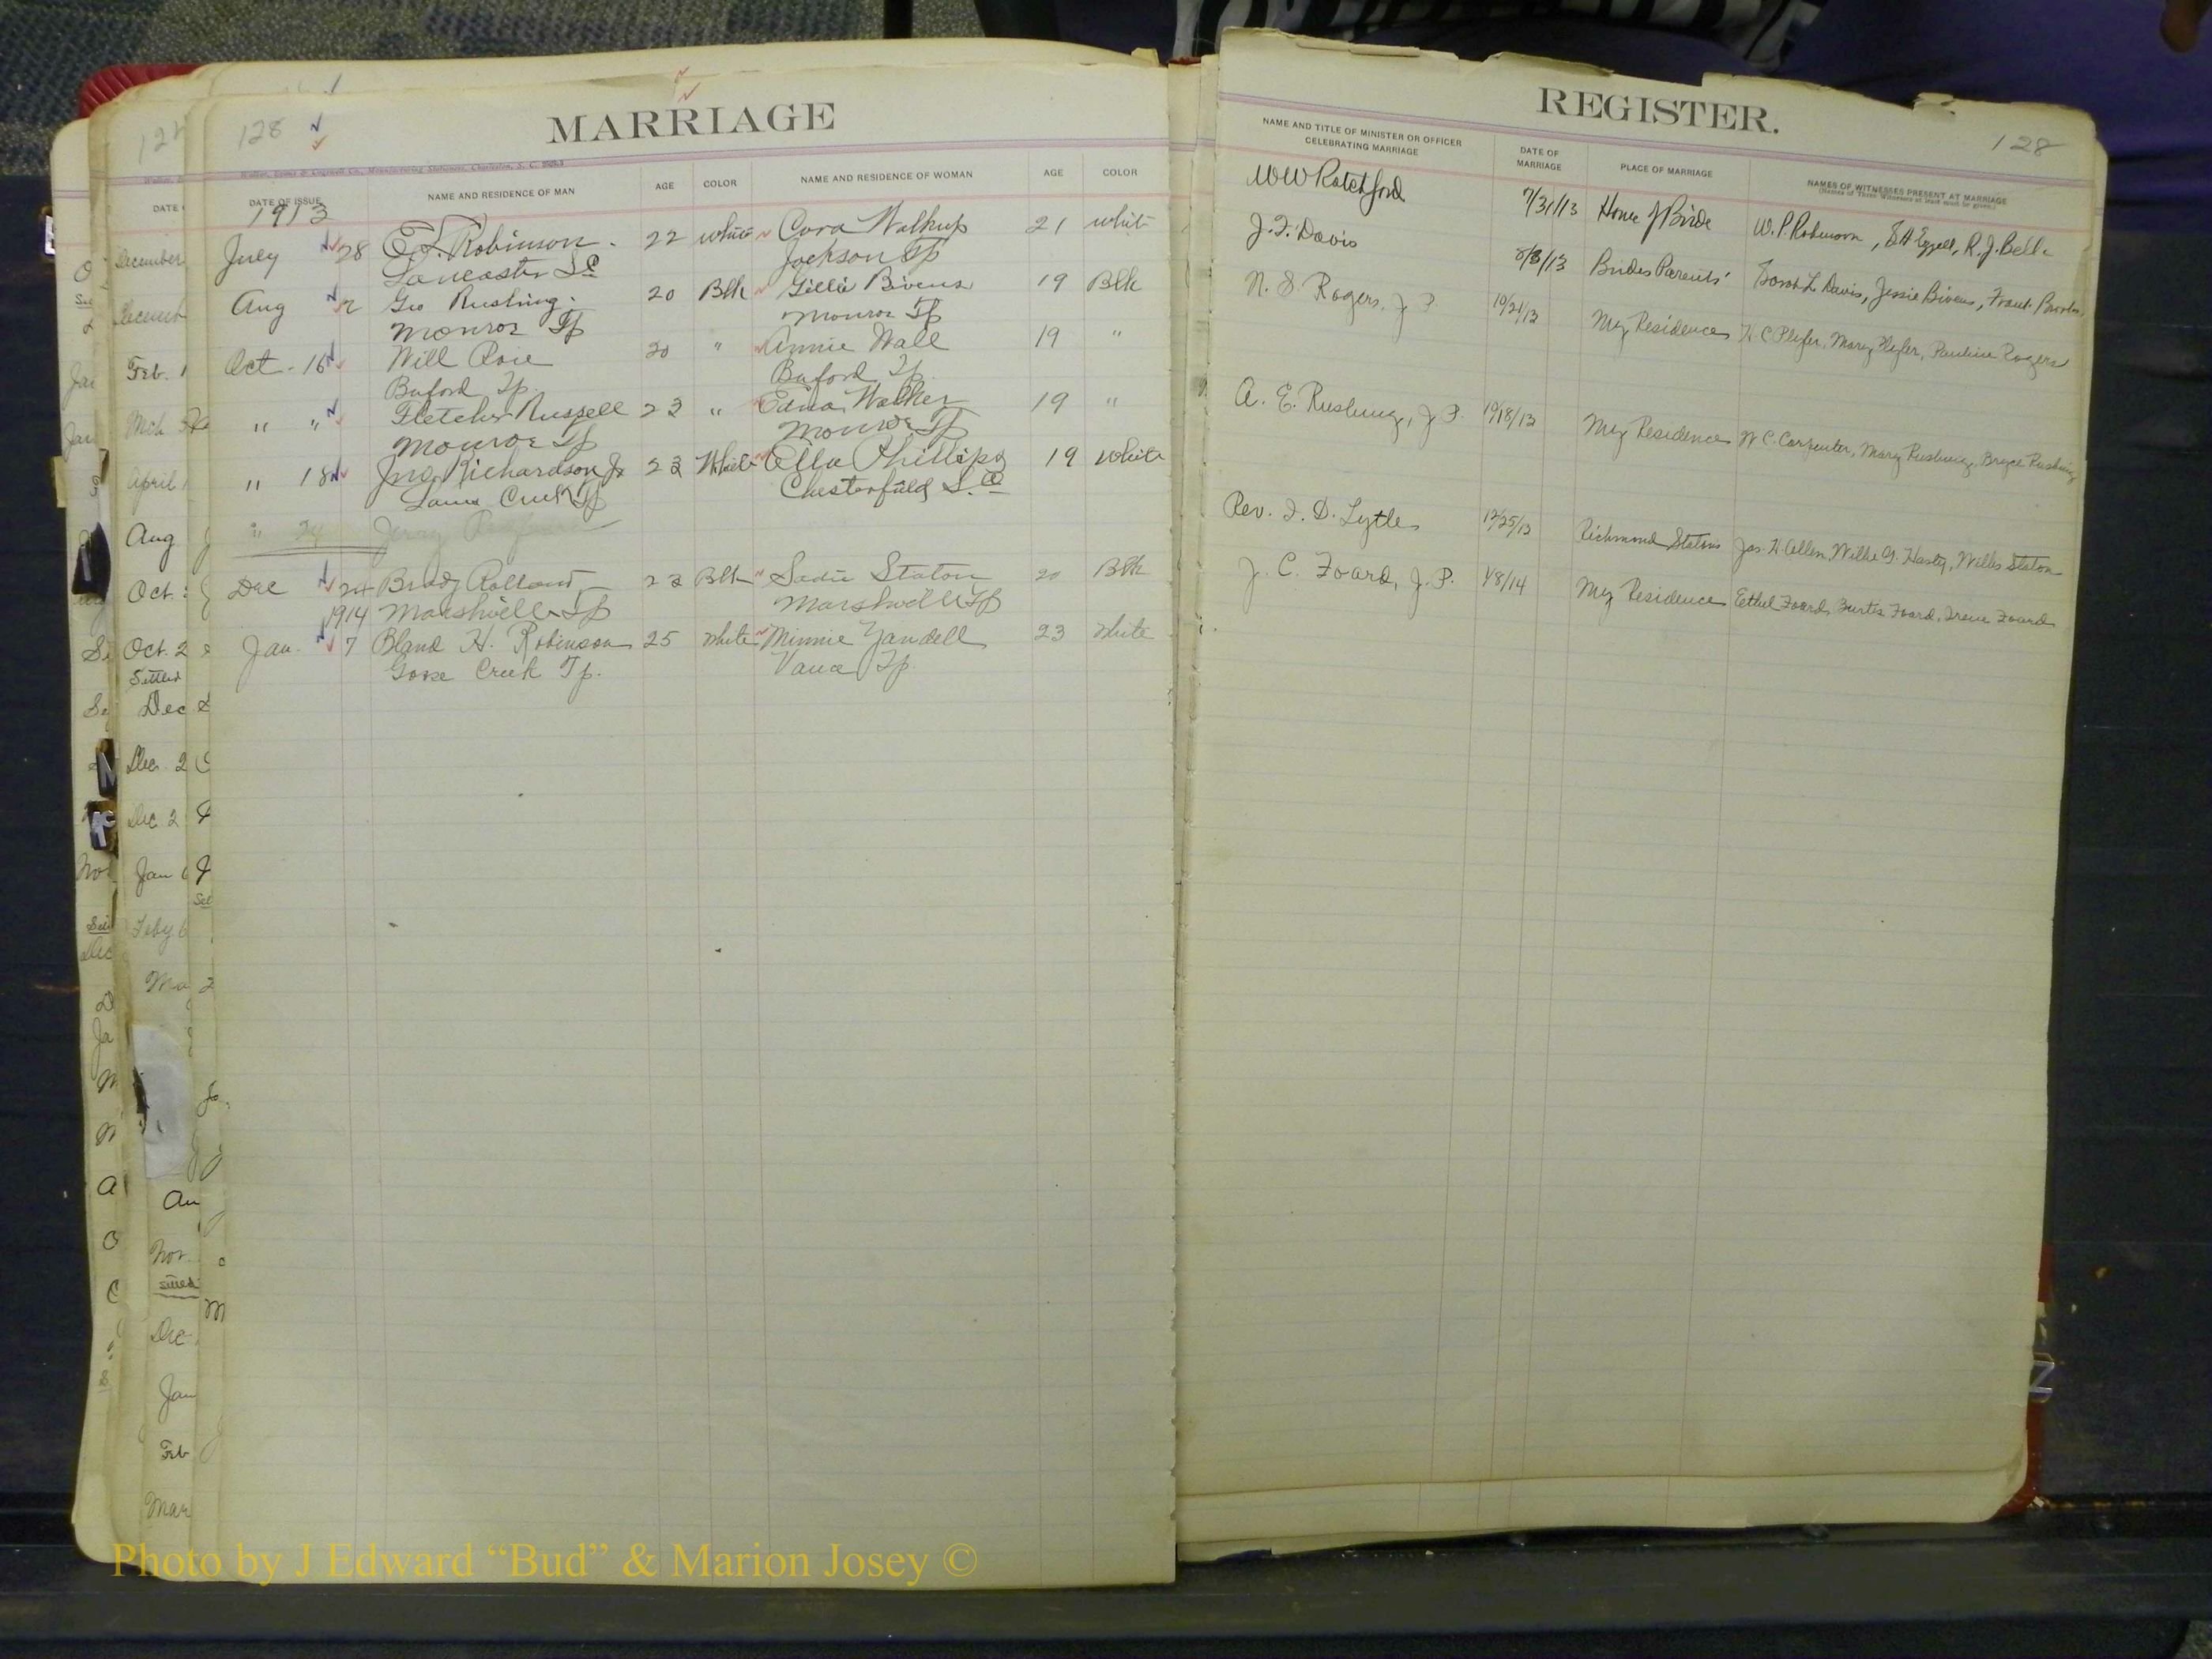 128
MARRIAGE
DATE OF ISSUE
NAME AND RESIDENCE OF MAN
AGE
COLOR
NAME AND RESIDENCE OF WOMAN
AGE
COLOR
1913
July 28 E. L. Robinson 22 White Cora Walkup 21 White
Lancaster S C Jackson Tp
Aug 2 Geo Rushing 20 Blk Gillie Bivens 19 Blk
Monroe Tp Monroe Tp
Oct - 16 Will Rore 20 " Annie Wall 19 "
Buford Tp. Buford Tp.
" " Fletcher Russell 23 " Edna Walker 19 "
Monroe Tp Monroe Tp
" 18 Jno. Richardson Jr 23 White Ella Phillips 19 White
Lanes Creek Tp Chesterfield S. C
" 24 Jeray
Dec 24 Brady 23 Blk Sadie Staton 20 Blk
1914 Marshville Tp Marshville Tp
Jan. 7 Bland H. Robinson 25 White Minnie Yandell 23 White
Goose Creek Tp. Vance Tp.
REGISTER.
128
NAME AND TITLE OF MINISTER OR OFFICER
CELEBRATING MARRIAGE
DATE OF
MARRIAGE
PLACE OF MARRIAGE
NAMES OF WITNESSES PRESENT AT MARRIAGE
(Names of Three Witnesses at least must be given.)
W W Ratchford 7/31/13 Home of Bride W. P. Robinson, Ezzell, R. J. Bell
J. F. Davis 8/3/13 Brides Parents' Davis, Jessie Bivens, Frank
N. S. Rogers, J P 10/21/13 My Residence H C Plyler, Mary Plyler, Pauline Rogers
A. E. Rushing, J P. 10/18/13 My Residence W C. Carpenter, Mary Rushing, Bryce Rushing
Rev. I. D. Lytle 12/25/13 Richmond Statons Jas. H. Allen, Willie G. Hasty, Willis Staton
J. C. Foard, J. P. 1/8/14 My Residence Eethel Foard, Curtis Foard, Irene Foard
December
Feb. 1
April
Aug
Oct.
Oct. 2
Settled
Dec
Dec. 2
Dec 2
Jan 6
Feby 6
Nov.
Dec.
Jan
Feb
Mar
Photo by J Edward “Bud” & Marion Josey ©